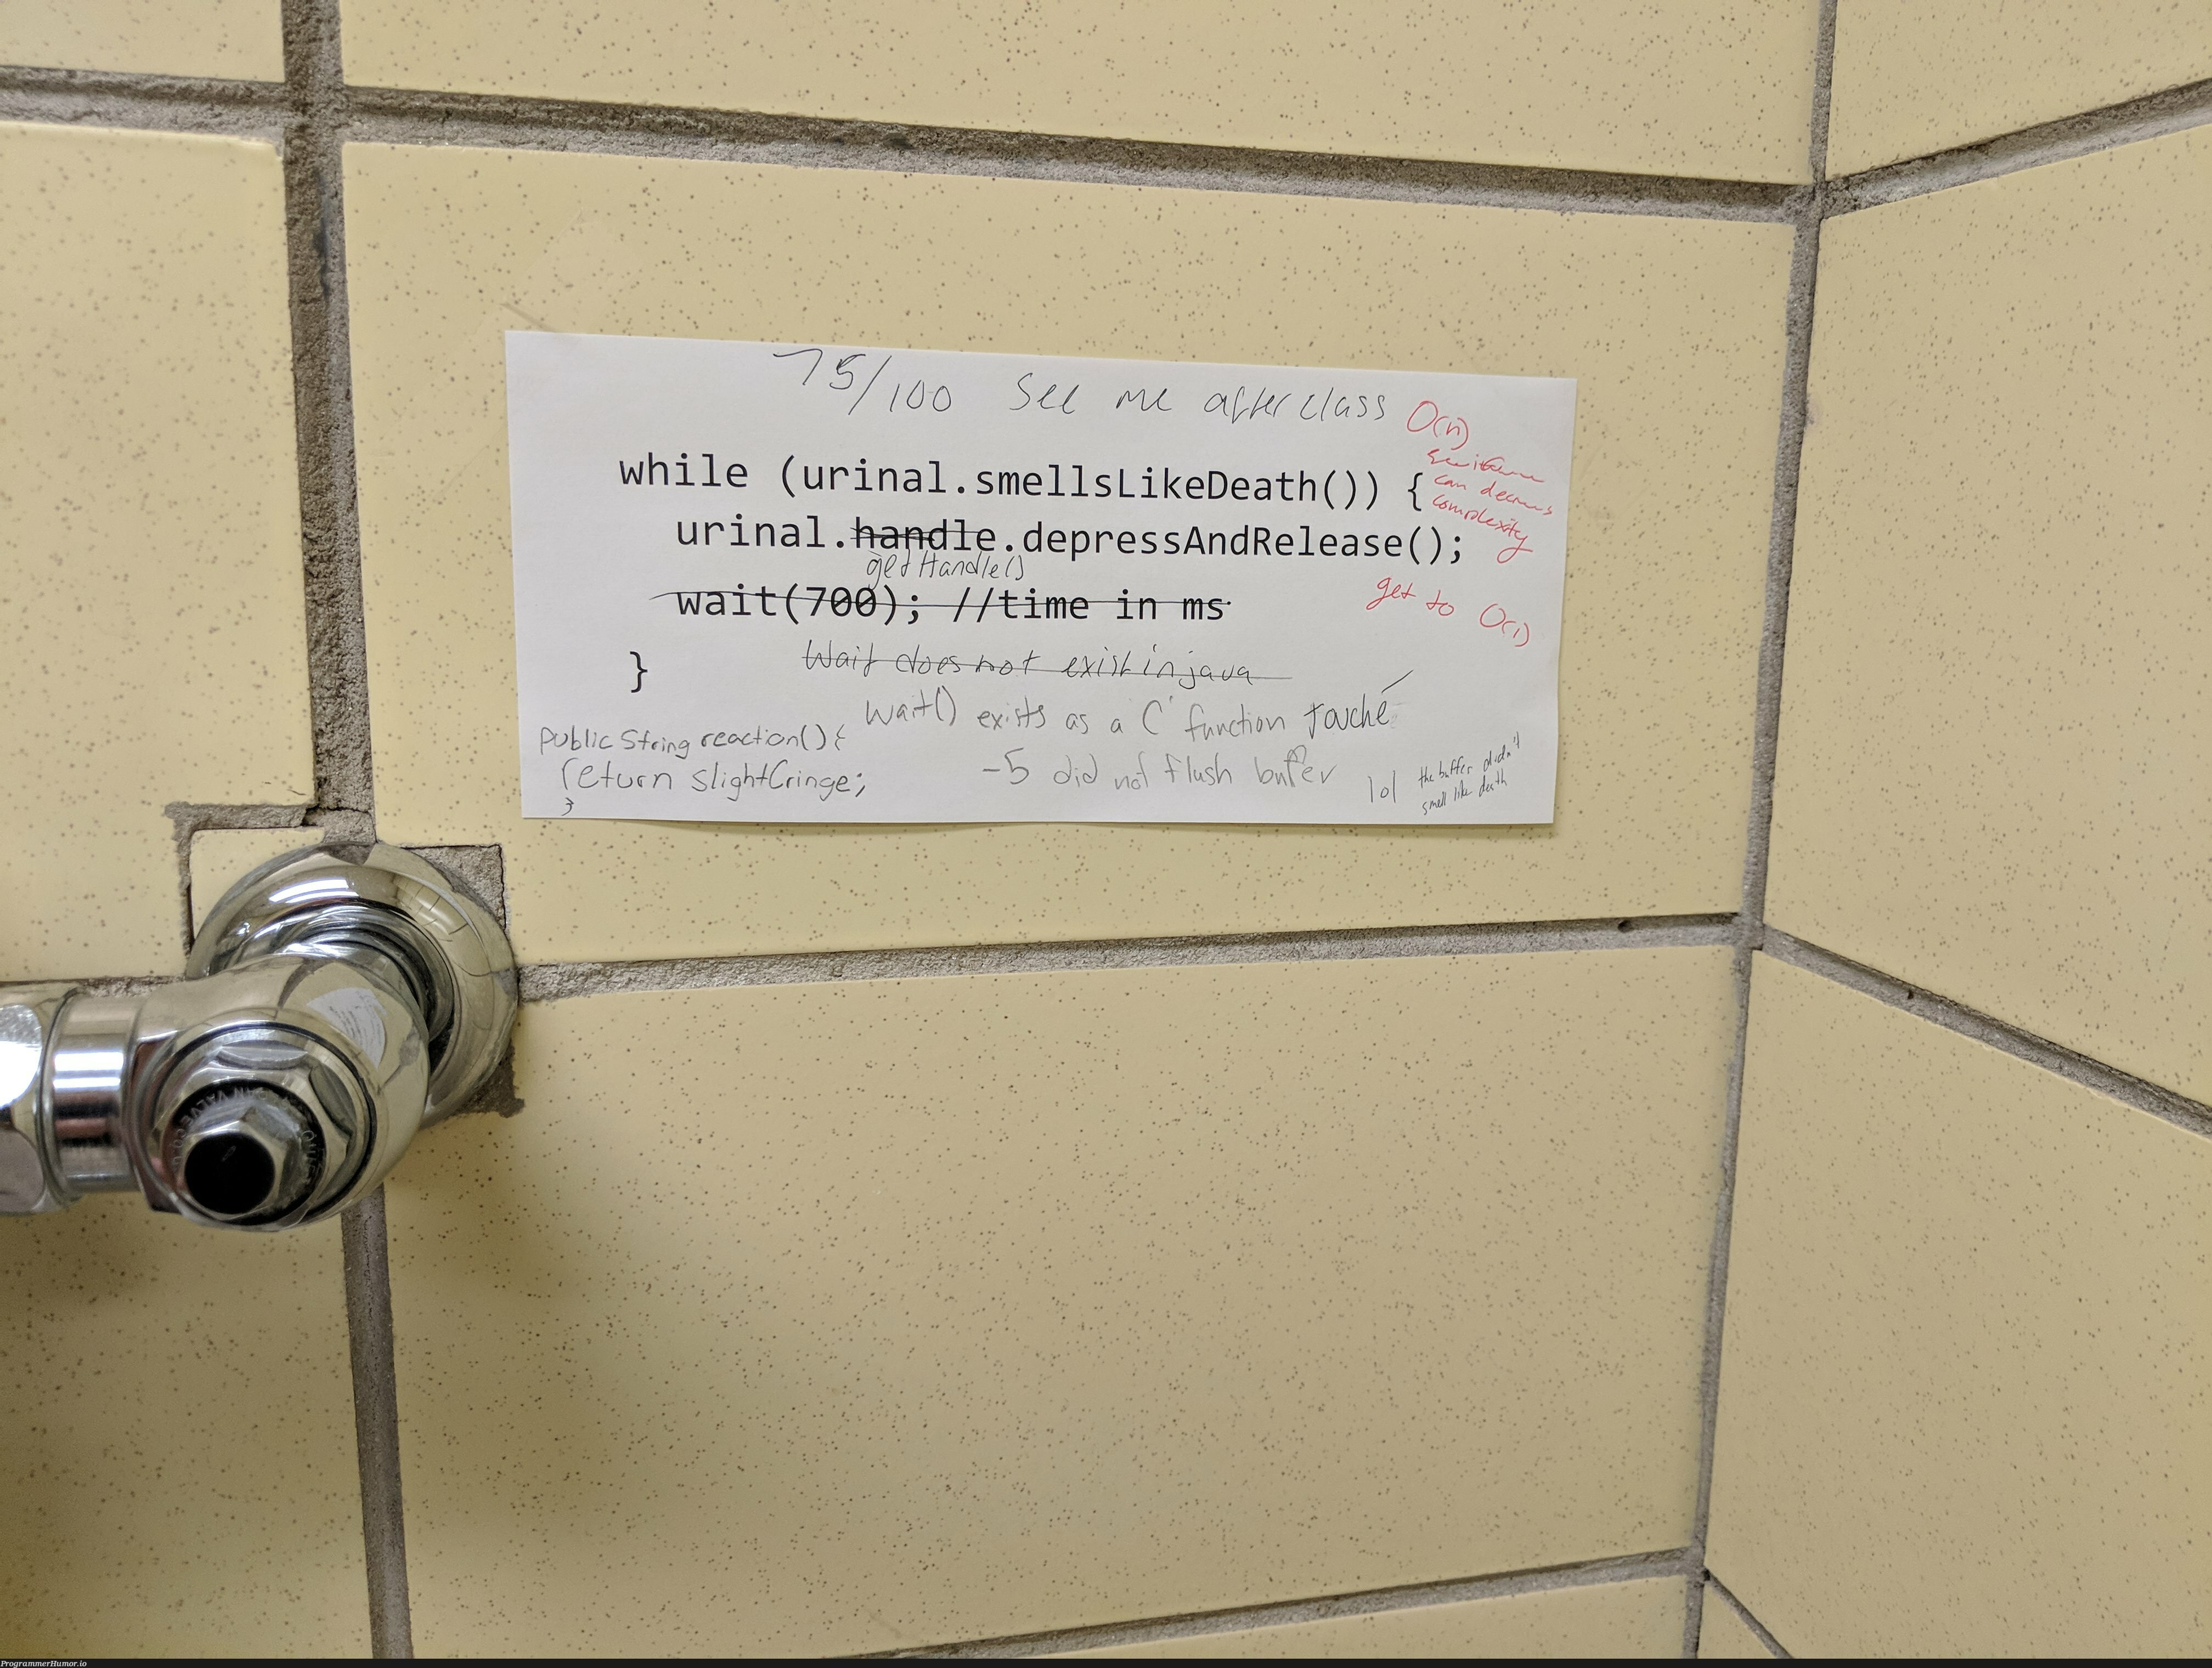 75/100 See me after class
O(n)
can
complexity
get to O(1)
while (urinal.smellsLikeDeath()) {
urinal.handle.depressAndRelease();
getHandle()
wait(700); //time in ms
Wait does not exist in java
}
wait() exists as a C function touché
public String reaction() {
return slightCringe;
}
-5 did not flush buffer
lol
the buffer didn't
smell like death
ProgrammerHumor.io